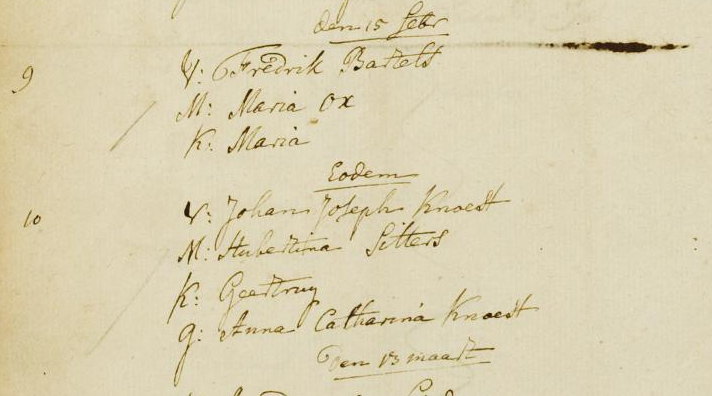 den 15 Febr
9 V: Fredrik Bartels
M: Maria Ox
K: Maria
Eodem
10 V: Johan Joseph Knoest
M: Hubertina Sitters
K: Geertruy
g: Anna Catharina Knoest
Den 13 maart